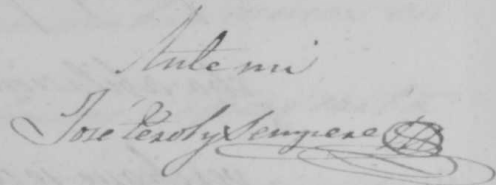 Ante mi
José Peroly Sempere